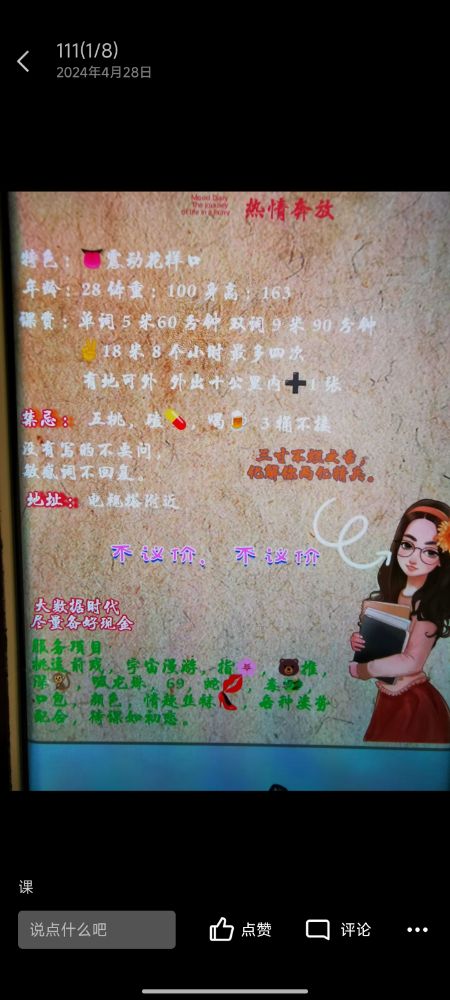 111(1/8)
2024年4月28日
Mood Diary
The journey
of life in a hurry
热情奔放
特色：👅震动花样口
年龄：28 体重：100 身高：163
课费：单词 5 米60 分钟 双词 9 米 90 分钟
✌18 米 8 个小时 最多四次
有地可外 外出十公里内➕1 张
禁忌：
💊 喝🍺 3 桶不接
没有写的不要问，
敏感词不回复。
三寸不烂之舌，
化解你两亿精兵。
地址：电视塔附近
不议价， 不议价
大数据时代
尽量备好现金
服务项目
挑逗前戏，宇宙漫游，指🌸，🐻推，
深🦉，69，
口包，颜色，情趣丝袜👠，各种姿势
配合，待课如初恋。
课
说点什么吧
点赞
评论